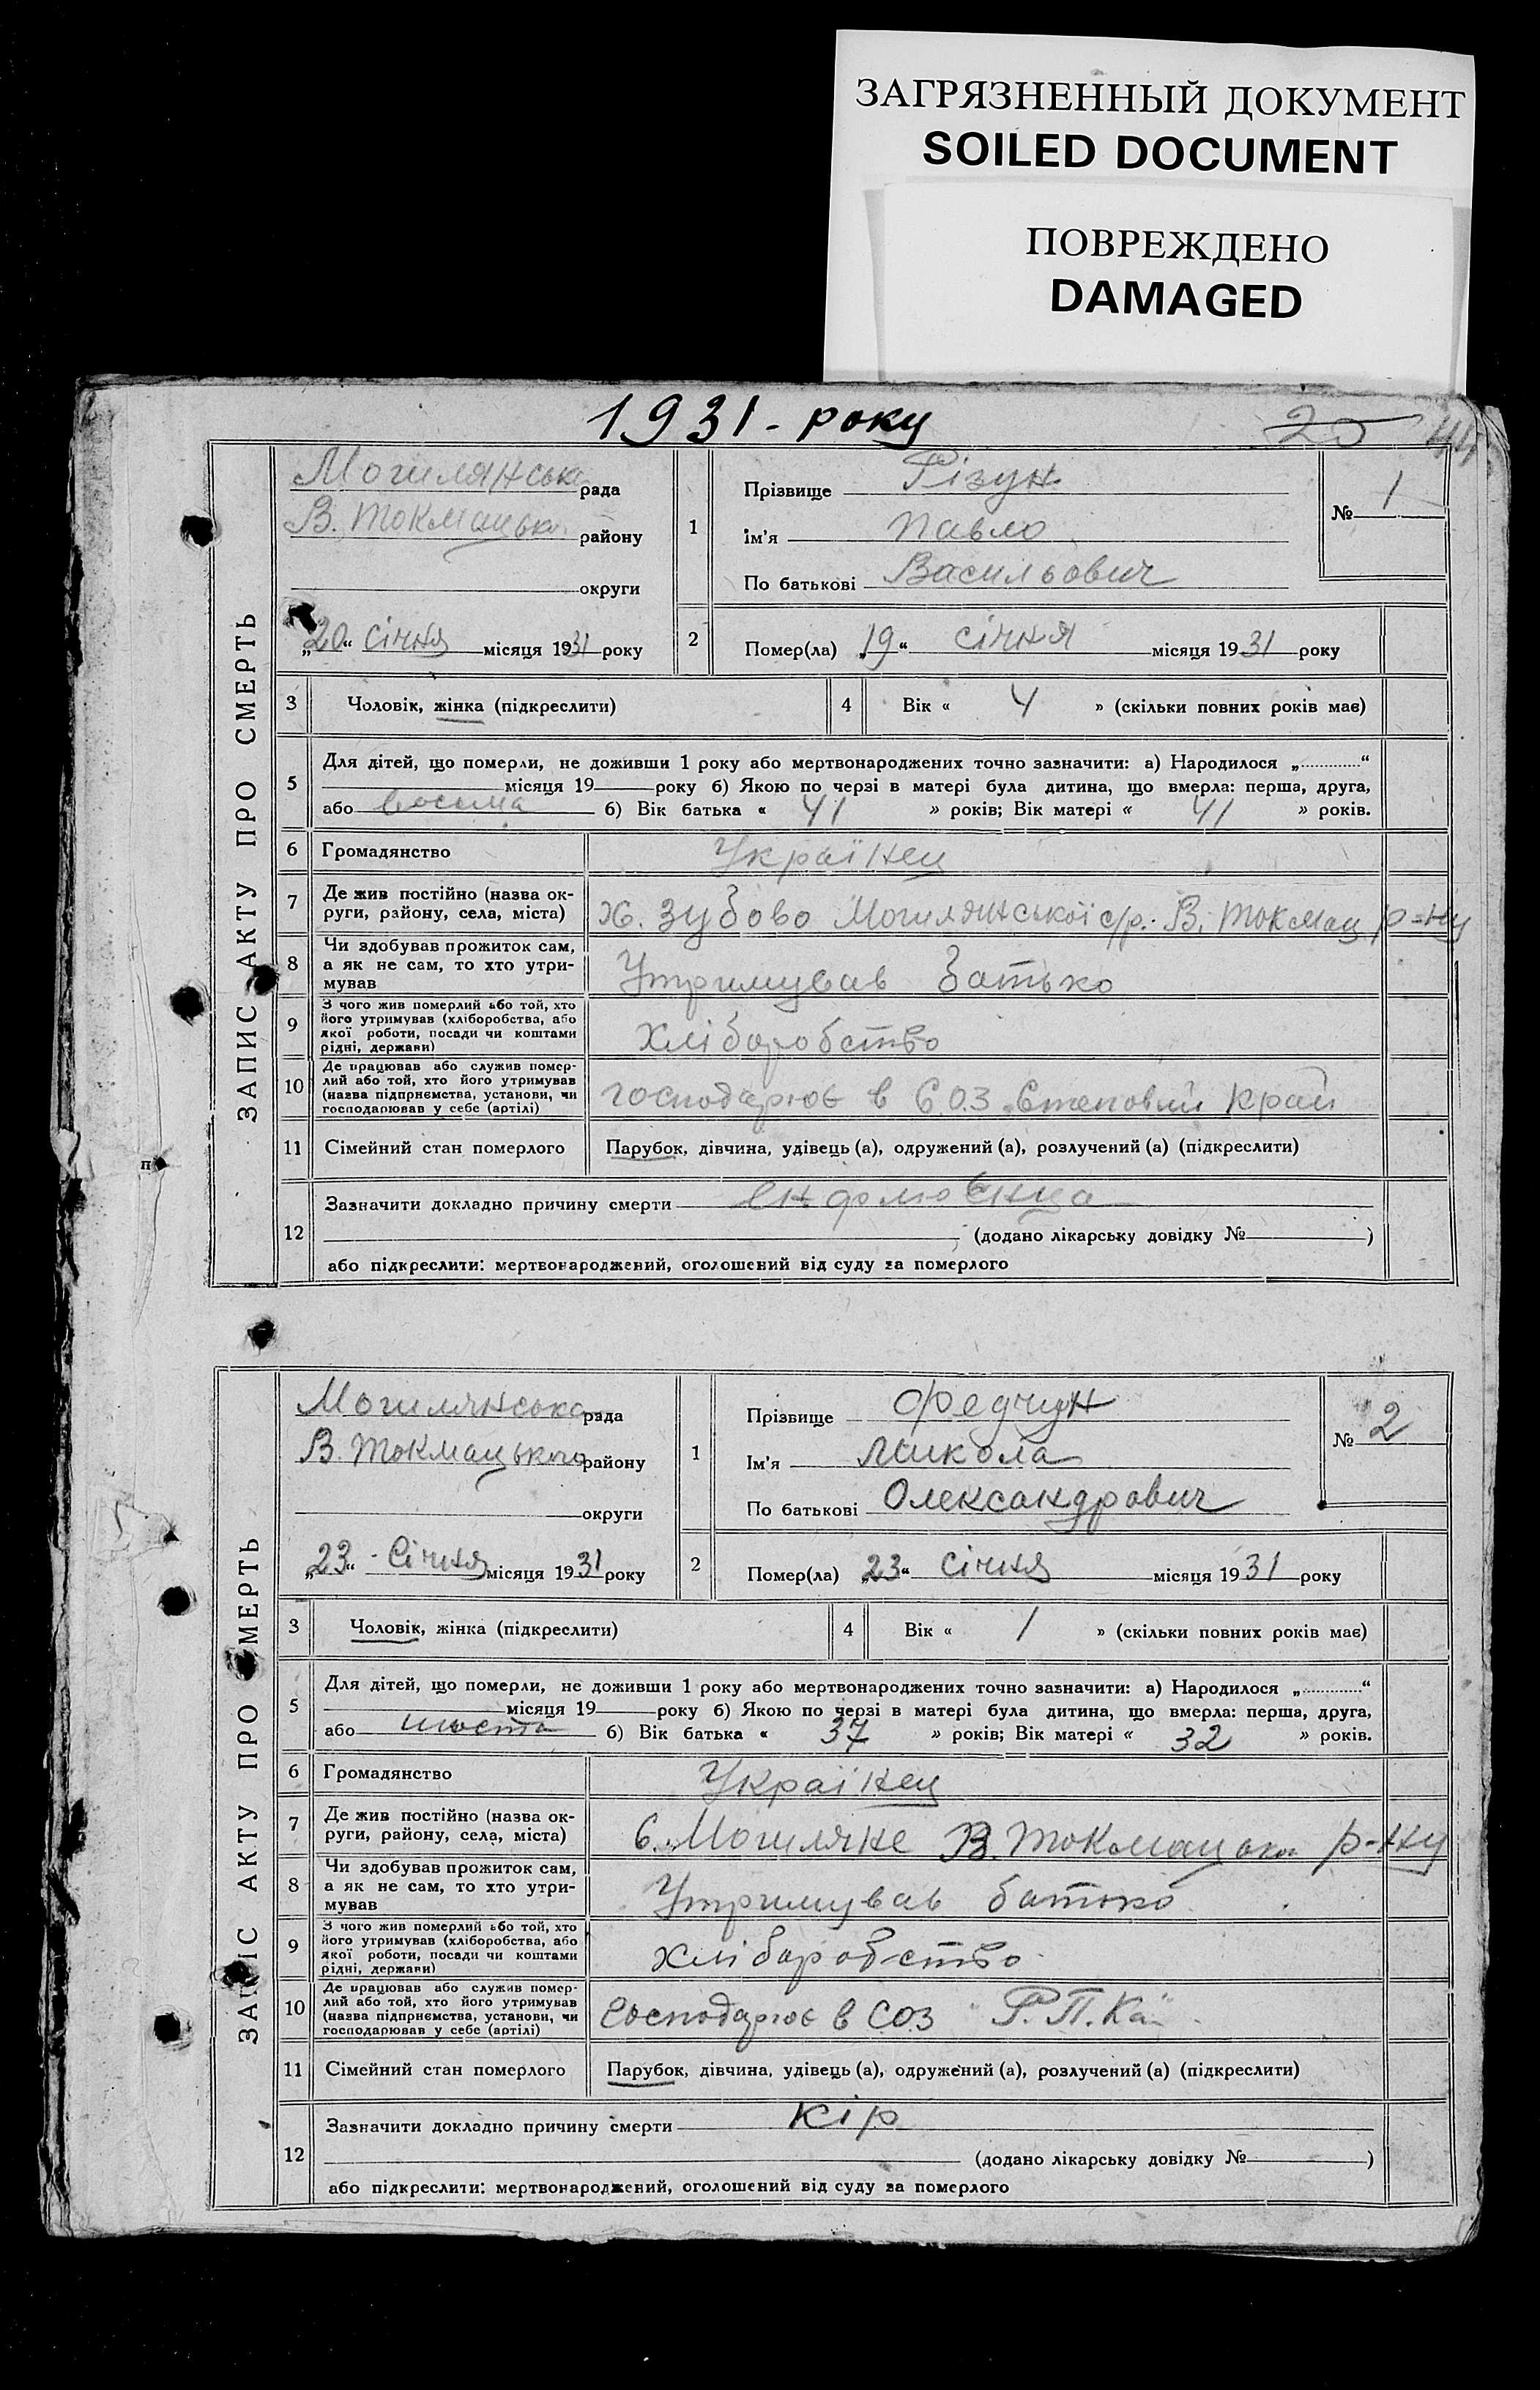 ЗАГРЯЗНЕННЫЙ ДОКУМЕНТ
SOILED DOCUMENT
ПОВРЕЖДЕНО
DAMAGED
1931 - року
20 44
ЗАПИС АКТУ ПРО СМЕРТЬ
Могилянська рада
В. Токмацьк. району
округи
„20“ січня місяця 1931 року
1
Прізвище Різун
Ім'я Павло
По батькові Васильович
№ 1
2
Помер(ла) „19“ січня місяця 1931 року
3 Чоловік, жінка (підкреслити)
4 Вік « 4 » (скільки повних років має)
5
Для дітей, що померли, не доживши 1 року або мертвонароджених точно зазначити: а) Народилося „............“
місяця 19 року б) Якою по черзі в матері була дитина, що вмерла: перша, друга,
або восьма б) Вік батька « 41 » років; Вік матері « 41 » років.
6 Громадянство Українец
7 Де жив постійно (назва ок-
руги, району, села, міста)
х. Зубово Могилянської с/р. В. Токмац р-ну
8 Чи здобував прожиток сам,
а як не сам, то хто утри-
мував
Утримував батько
9 З чого жив померлий або той, хто
його утримував (хліборобства, або
якої роботи, посади чи коштами
рідні, держави)
Хліборобство
10 Де працював або служив помер-
лий або той, хто його утримував
(назва підприємства, установи, чи
господарював у себе (артілі)
господарює в СОЗ Степовий край
11 Сімейний стан померлого Парубок, дівчина, удівець (а), одружений (а), розлучений (а) (підкреслити)
12
Зазначити докладно причину смерти
(додано лікарську довідку № )
або підкреслити: мертвонароджений, оголошений від суду за померлого
ЗАПИС АКТУ ПРО СМЕРТЬ
Могилянська рада
В. Токмацького району
округи
„23“ Січня місяця 1931 року
1
Прізвище Федчун
Ім'я Микола
По батькові Олександрович
№ 2
2
Помер(ла) „23“ Січня місяця 1931 року
3 Чоловік, жінка (підкреслити)
4 Вік « 1 » (скільки повних років має)
5
Для дітей, що померли, не доживши 1 року або мертвонароджених точно зазначити: а) Народилося „............“
місяця 19 року б) Якою по черзі в матері була дитина, що вмерла: перша, друга,
або шоста б) Вік батька « 37 » років; Вік матері « 32 » років.
6 Громадянство Українец
7 Де жив постійно (назва ок-
руги, району, села, міста)
С. Могиляне В. Токмацьк. р-ну
8 Чи здобував прожиток сам,
а як не сам, то хто утри-
мував
Утримував батько
9 З чого жив померлий або той, хто
його утримував (хліборобства, або
якої роботи, посади чи коштами
рідні, держави)
хліборобство
10 Де працював або служив помер-
лий або той, хто його утримував
(назва підприємства, установи, чи
господарював у себе (артілі)
Господарює в СОЗ "Р.П.Ка"
11 Сімейний стан померлого Парубок, дівчина, удівець (а), одружений (а), розлучений (а) (підкреслити)
12
Зазначити докладно причину смерти Кір
(додано лікарську довідку № )
або підкреслити: мертвонароджений, оголошений від суду за померлого